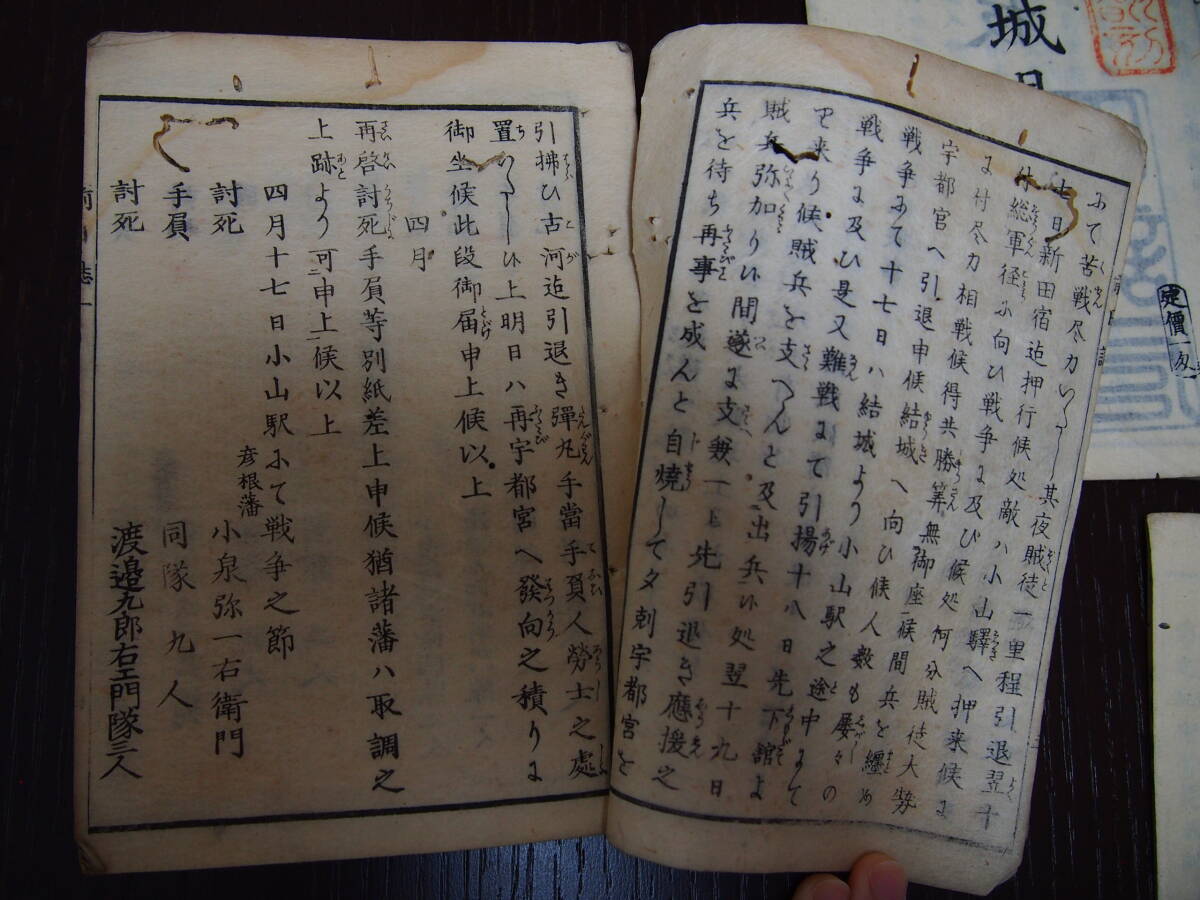 にて苦戦尽力いたし其夜賊徒一里程引退翌十
七日新田宿迄押行候処敵ハ小山驛へ押来候に
付総軍径に向ひ戦争に及び候処何分賊徒大勢
に付尽力相戦候得共勝筭無御座候間兵を纏め
宇都宮へ引退申候結城へ向ひ候人数も屡々の
戦争にて十七日ハ結城より小山駅之途中にて
戦争に及ひ是又難戦にて引揚十八日先下館よ
り来り候賊兵を支へんと及出兵候処翌十九日
賊兵弥加り候間遂に支兼一ト先引退き應援之
兵を待ち再事を成んと自焼して夕刺宇都宮を
引拂ひ古河迄引退き彈丸手當手負人勞士之處
置いたし候上明日ハ再宇都宮へ發向之積りに
御坐候此段御届申上候以上
四月
再啓討死手負等別紙差上申候猶諸藩ハ取調之
上跡より可申上候以上
四月十七日小山駅にて戦争之節
彦根藩
討死 小泉弥一右衛門
手負 同隊九人
討死 渡邉九郎右エ門隊三人
城
定價一匁